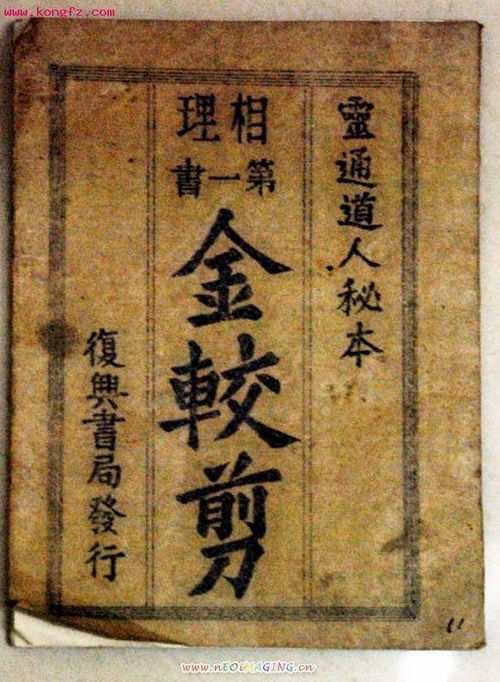 www.kongfz.com
靈通道人秘本
相理
第一書
金較剪
復興書局發行
11
www.nEOiMAGING.cn